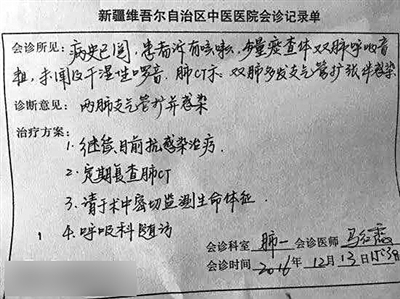 新疆维吾尔自治区中医医院会诊记录单
会诊所见：病史已阅，患者诉有咳嗽，少量痰，查体双肺呼吸音
粗，未闻及干湿性啰音，肺CT示：双肺多发支气管扩张伴感染
诊断意见：两肺支气管扩张并感染
治疗方案：
1.继续目前抗感染治疗.
2.定期复查肺CT
3.请于术中密切监测生命体征.
4.呼吸科随访
会诊科室 肺一 会诊医师 马红霞
会诊时间 2016 年 12 月 13 日